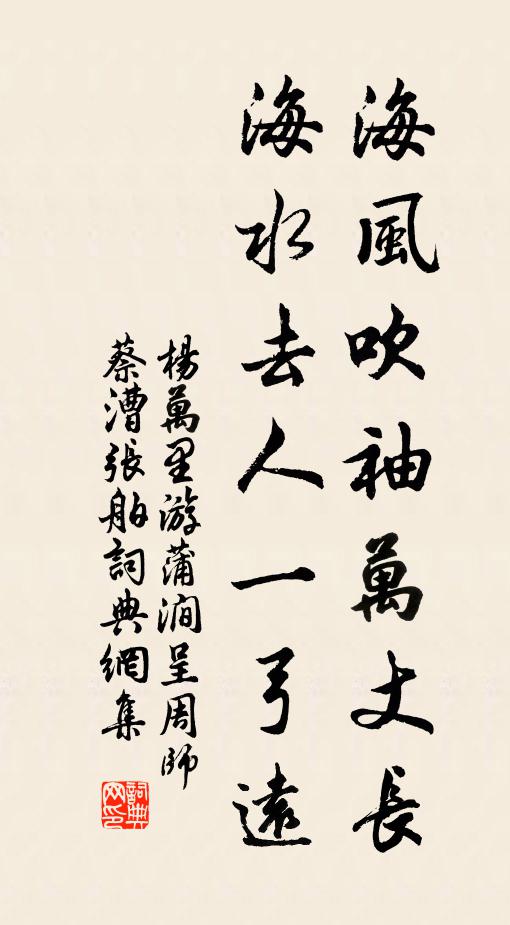 海風吹袖萬丈長
海水去人一弓遠
楊萬里游蒲澗呈周師
蔡漕張舶詞典網集
詞典
网印